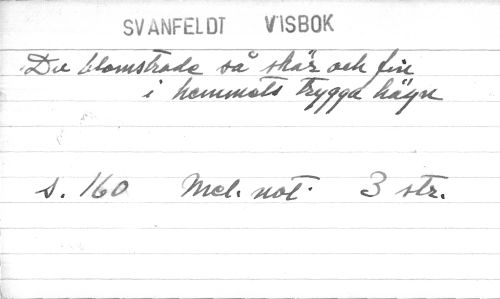 SVANFELDT VISBOK
Du blomstrade så skär och fin
i hemmets trygga hägn
s. 160 Mel. not. 3 str.